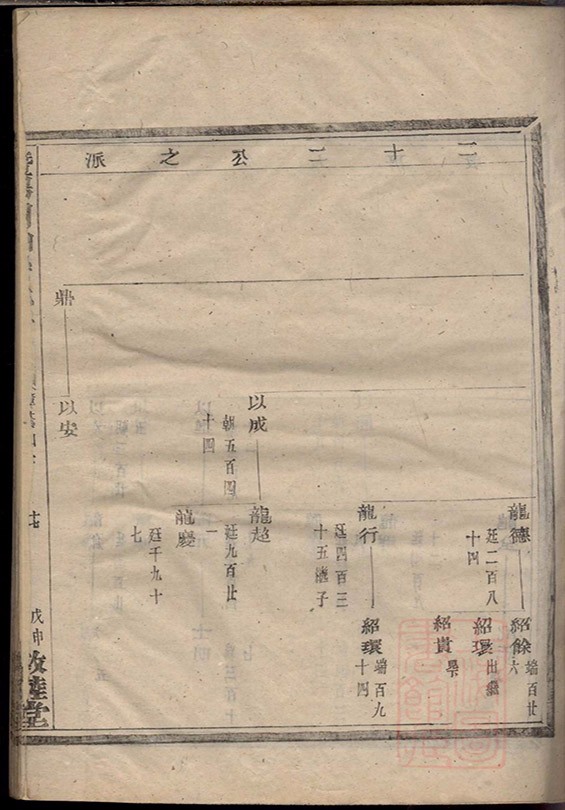 二十二公之派
龍德
廷二百八
十四
紹餘
端百廿
六
紹環
出繼
紹貴
龍行
廷四百三
十五繼子
紹環
端百九
十四
以成
朝五百四
十四
龍超
廷九百廿
一
龍慶
廷千九十
七
鼎
以安
十七
戊申
敦睦堂